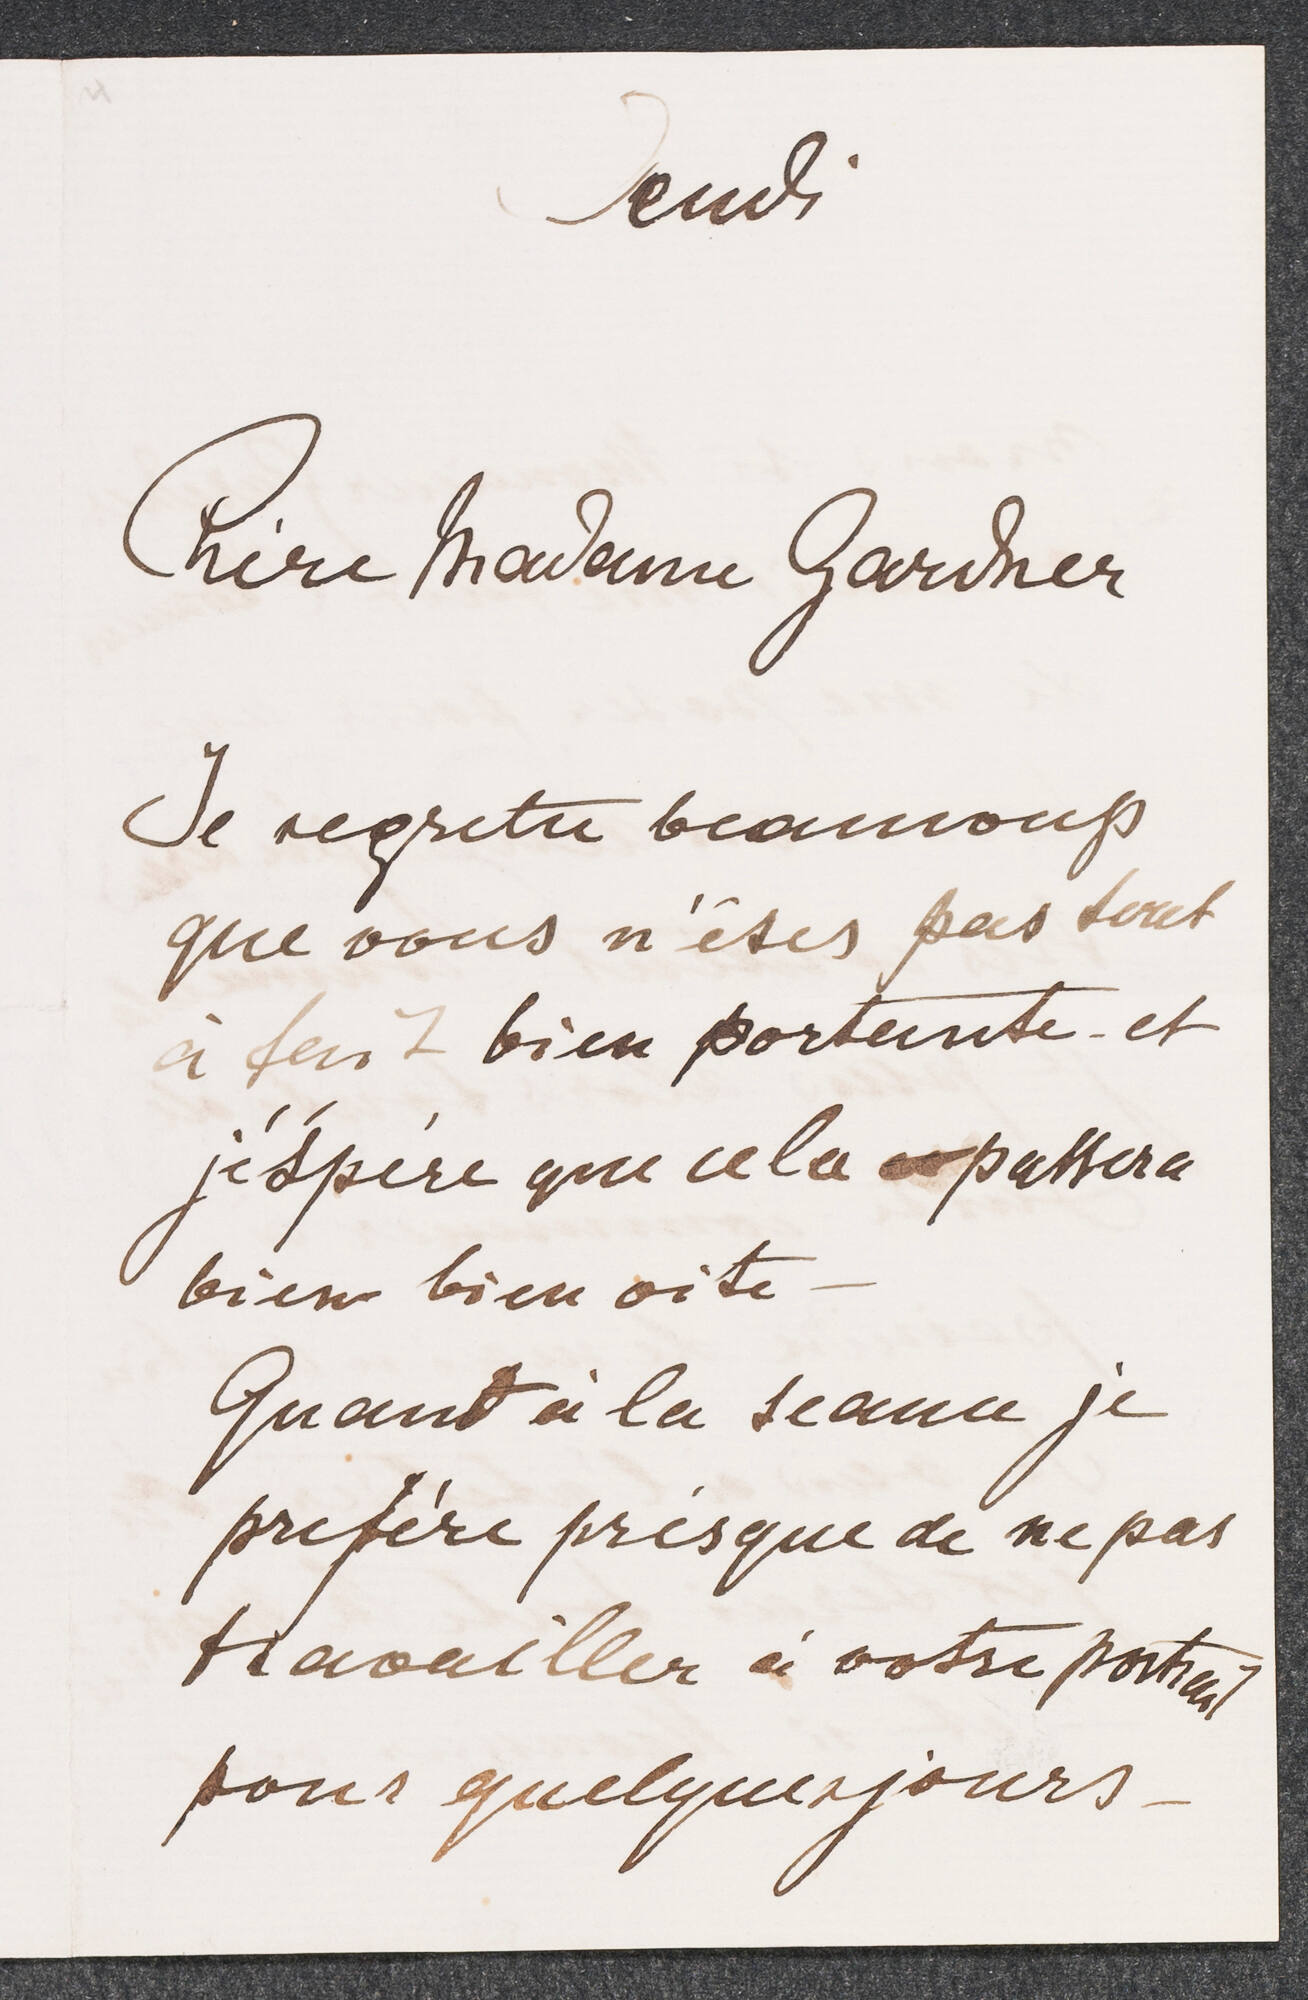 Jeudi
Chère Madame Gardner
Je regrette beaucoup
que vous n'étes pas tout
à fait bien portante - et
j'éspére que cela passera
bien bien vite -
Quant à la seance je
prefére présque de ne pas
travailler à votre portrait
pour quelques jours -